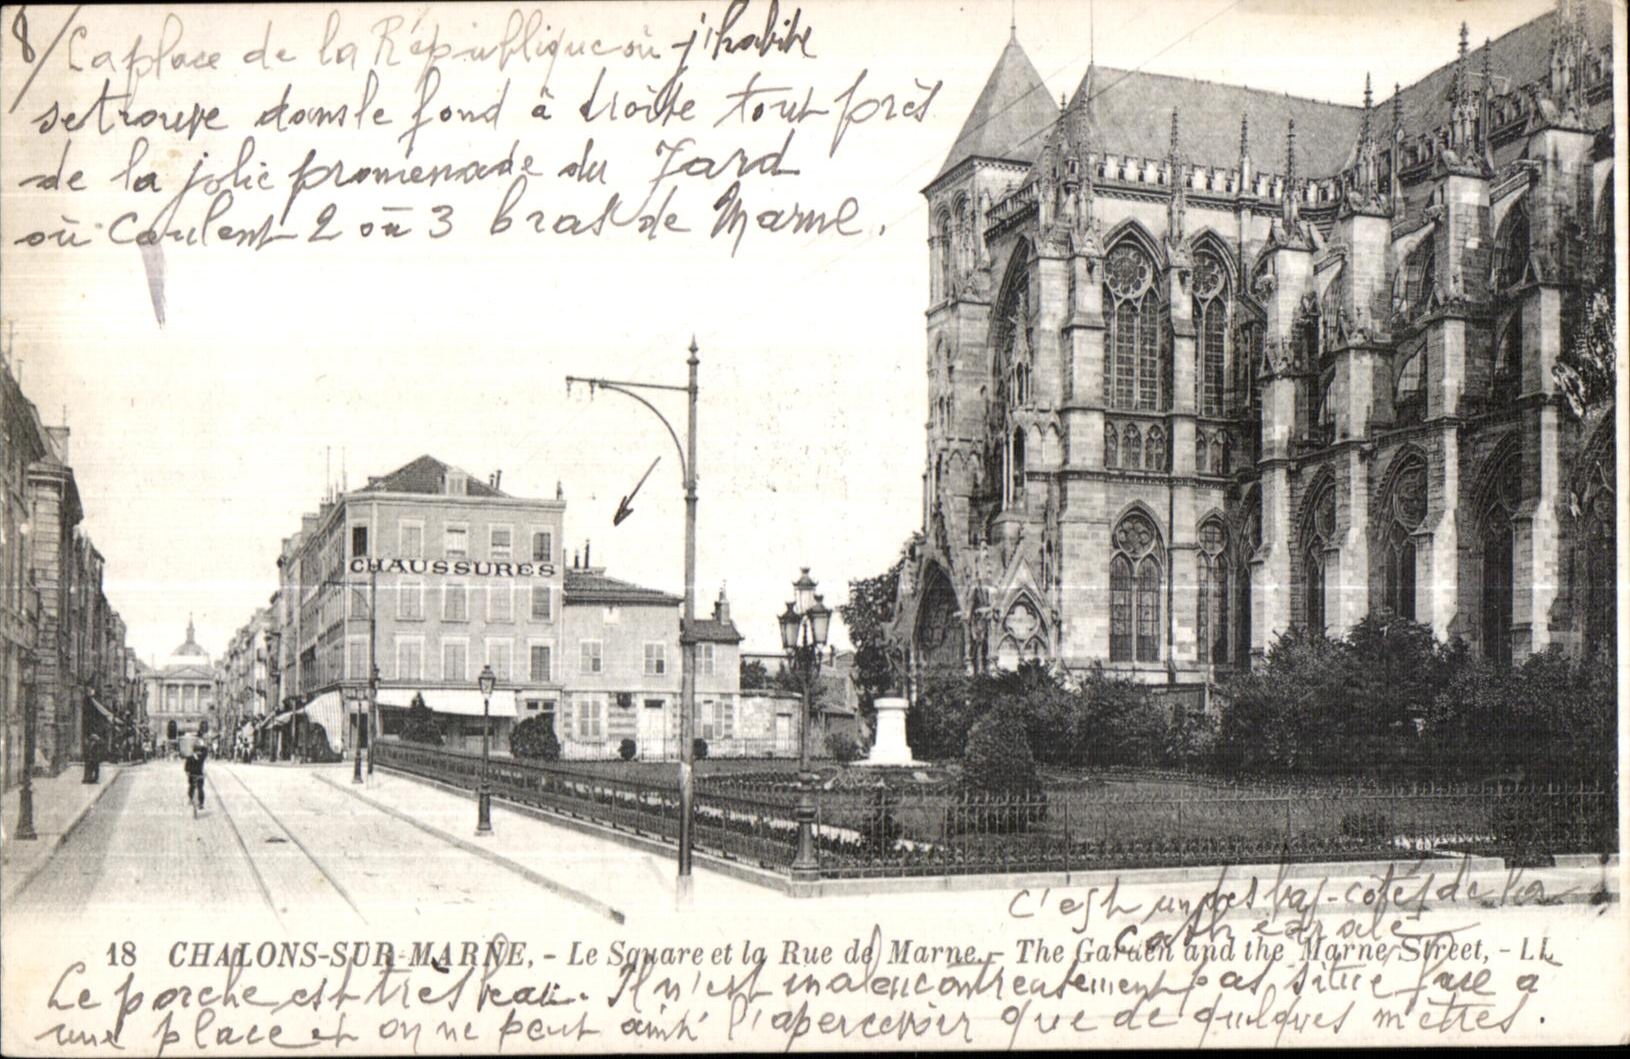 8/ La place de la République où j'habite
se trouve dans le fond à droite tout près
de la jolie promenade du Jard
où coulent 2 ou 3 bras de Marne.
CHAUSSURES
C'est un des bas-côtés de la
Cathédrale
18 CHALONS-SUR-MARNE, - Le Square et la Rue de Marne. - The Garden and the Marne Street, - LL
Le porche est très beau. Il n'est malencontreusement pas situé face à
une place et on ne peut ainsi l'apercevoir que de quelques mètres.